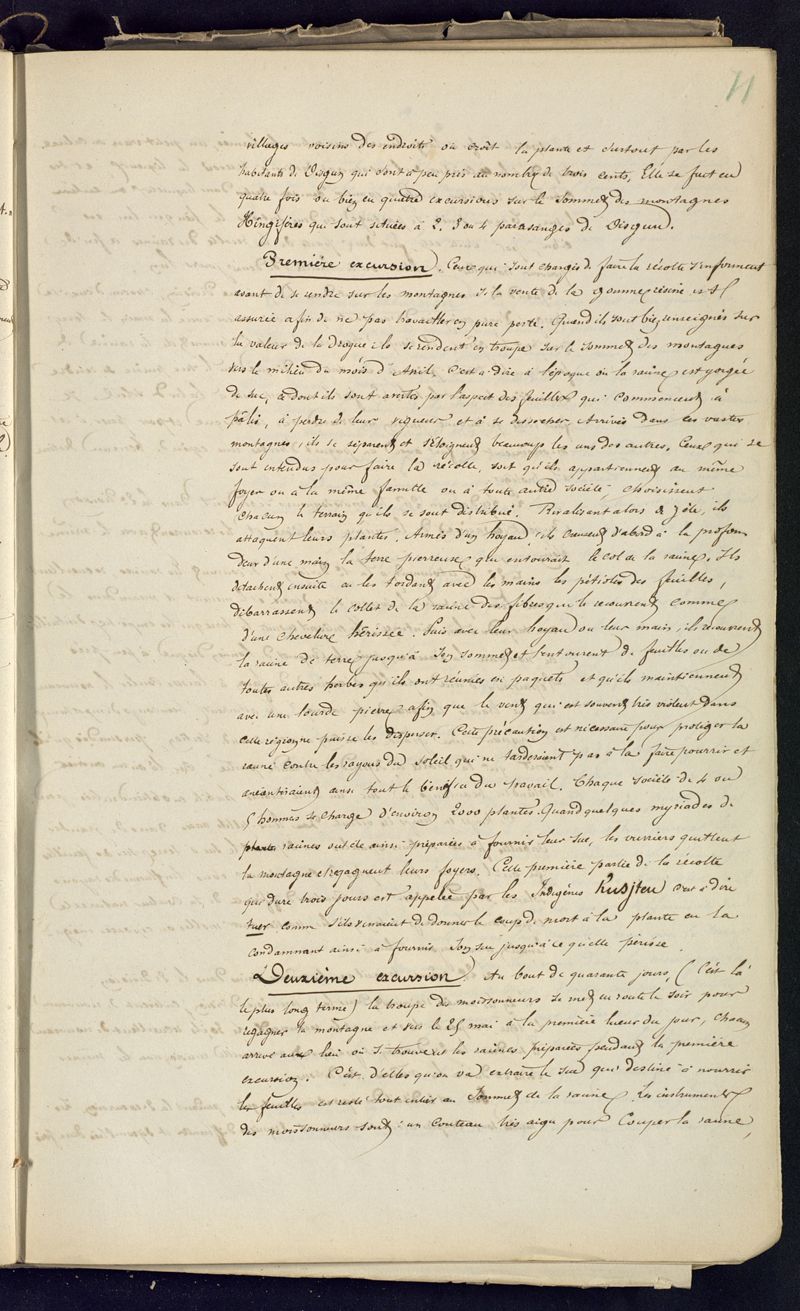 71
villages voisins des endroits où croît la plante et surtout par les
habitants de Disgun qui sont à peu près au nombre de trois cents. Elle se fait en
quatre fois ou bien en quatre excursions sur le sommet des montagnes
Hingifères qui sont situées à 2. 3 ou 4 parasanges de Disgun.
Première excursion. Ceux qui sont chargés de faire la récolte s'informent
avant de se rendre sur les montagnes si la vente de la gomme résine est
assurée afin de ne pas travailler en pure perte. Quand ils sont bien renseignés sur
la valeur de la drogue ils se rendent en troupe sur le sommet des montagnes
vers le milieu du mois d'Avril, c'est à dire à l'époque où la racine est gorgée
de suc, ce dont ils sont avertis par l'aspect des feuilles qui commencent à
pâlir, à perdre de leur vigueur et à se dessecher. Arrivés dans les vastes
montagnes, ils se séparent et s'éloignent beaucoup les uns des autres. Ceux qui se
sont entendus pour faire la récolte, soit qu'ils appartiennent au même
foyer ou à la même famille ou à toute autre société, choisissent
chacun le terrain qu'ils se sont distribué. Rivalisant alors de zèle, ils
attaquent leurs plantes. Armés d'un hoyau, ils creusent d'abord à la profon
deur d'une main la terre pierreuse qui entourait le col de la racine. Ils
détachent ensuite en les tordant avec les mains les pétioles des feuilles,
débarrassent le collet de la racine des fibres qui le recouvrent comme
d'une chevelure hérissée. Puis avec leur hoyau ou leur main, ils recouvrent
la racine de terre jusqu'à son sommet et l'entourent de feuilles ou de
toutes autres herbes qu'ils ont réunies en paquets et qu'ils maintiennent
avec une lourde pierre afin que le vent qui est souvent très violent dans
cette région ne puisse les disperser. Cette précaution est nécessaire pour protéger la
racine contre les rayons du soleil qui ne tarderaient pas à la faire pourrir et
anéantiraient ainsi tout le bénéfice du travail. Chaque société de 4 ou
5 hommes se charge d'environ 2000 plantes. Quand quelques myriades de
plantes racines ont été ainsi préparées à fournir leur suc, les ouvriers quittent
la montagne et regagnent leurs foyers. Cette première partie de la récolte
qui dure trois jours est appelée par les Indigènes Kusjten c'est à dire
tuer comme s'ils venaient de donner le coup de mort à la plante en la
condamnant ainsi à fournir son suc jusqu'à ce qu'elle périsse.
Deuxième excursion. Au bout de quarante jours, (c'est là
le plus long terme) la troupe des moissonneurs se met en route le soir pour
regagner la montagne et vers le 25 mai à la première lueur du jour, chacun
arrive au lieu où se trouvent les racines préparées pendant la première
excursion. C'est d'elles qu'on va extraire le suc qui destiné à nourrir
les feuilles est resté tout entier au sommet de la racine. Les instruments
des moissonneurs sont: un couteau très aigu pour couper la racine,